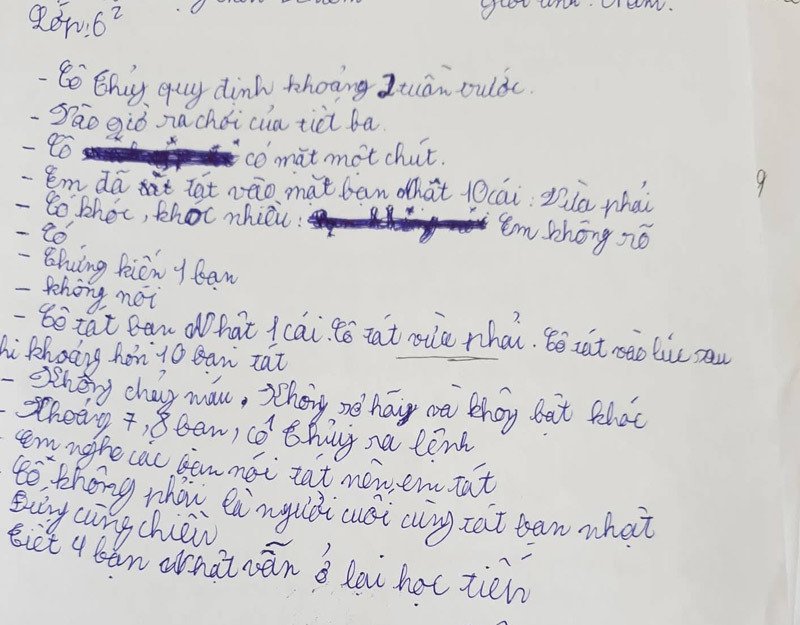 Lớp: 6²
Giới tính: Nam.
- Cô Thủy quy định khoảng 2 tuần trước.
- Vào giờ ra chơi của tiết ba
- Cô có mặt một chút.
- Em đã tát vào mặt bạn Nhật 10 cái: Vừa phải
- Có khóc, khóc nhiều: Em không rõ
- Có
- Chứng kiến 1 bạn
- không nói
- Cô tát bạn Nhật 1 cái. Cô tát vừa phải. Cô tát vào lúc sau
khi khoảng hơn 10 bạn tát
- Không chảy máu, Không và không bật khóc
- Khoảng 7, 8 bạn, cô Thủy ra lệnh
- Em nghe các bạn nói tát nên em tát
- Cô không phải là người cuối cùng tát bạn nhật
Đứng cùng chiều
Tiết 4 bạn Nhật vẫn ở lại học tiến
9